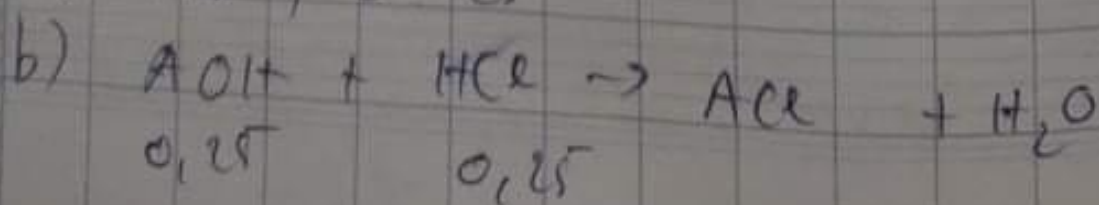 b) AOH + HCl → ACl + H₂O
0,25 0,25